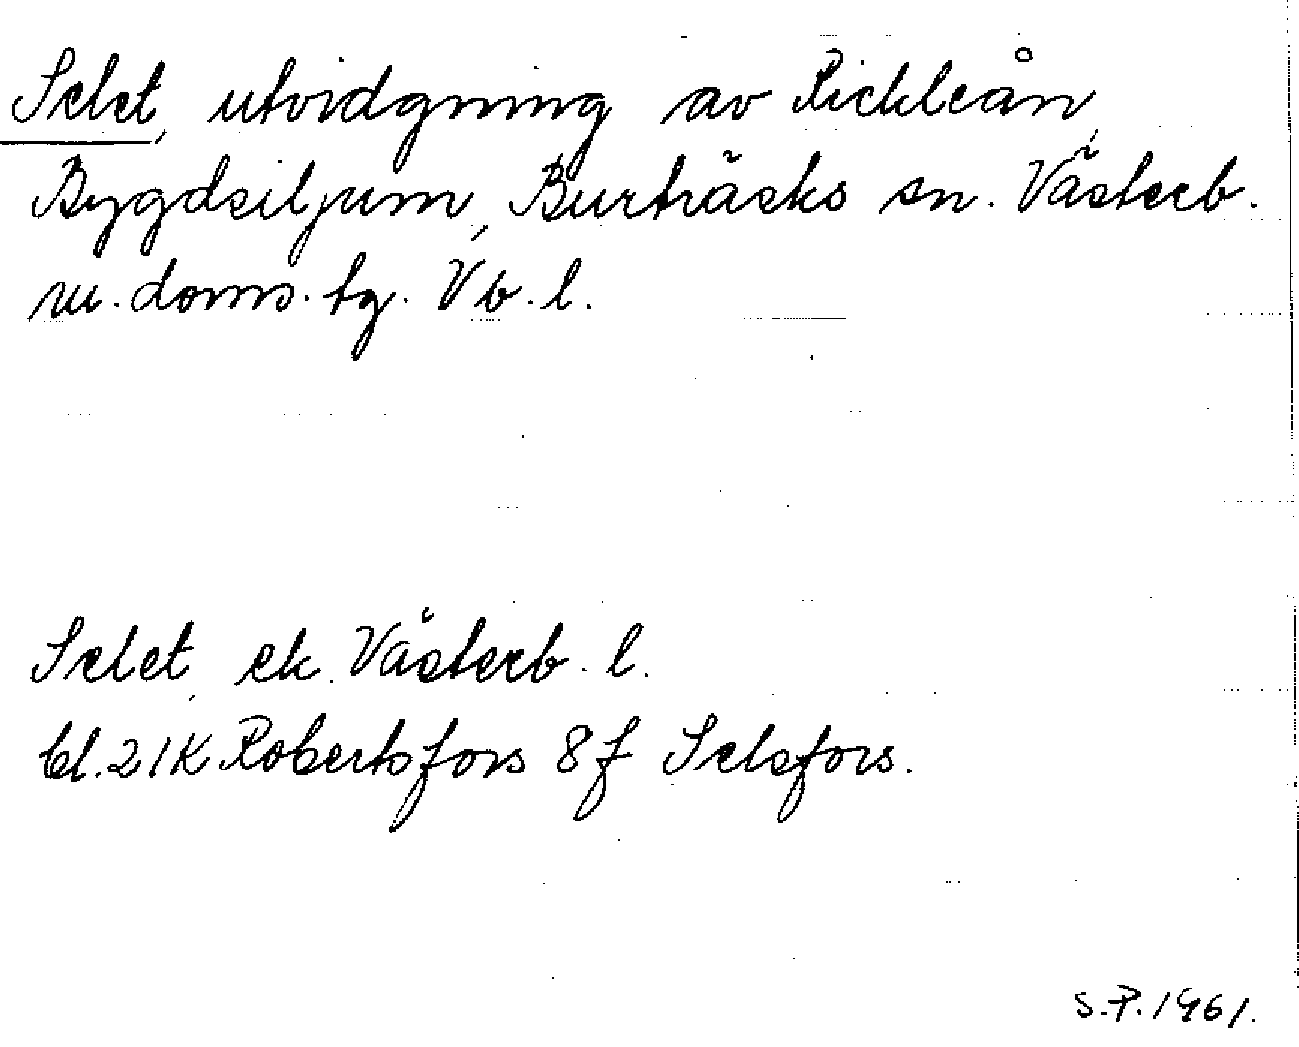 Selet, utvidgning av Rickleån,
Bygdsiljum, Burträsks sn. Västerb.
m. doms. tg. Vb. l.
Selet, ek. Västerb. l.
bl. 21K Robertsfors 8f Selsfors.
S.P. 1961.